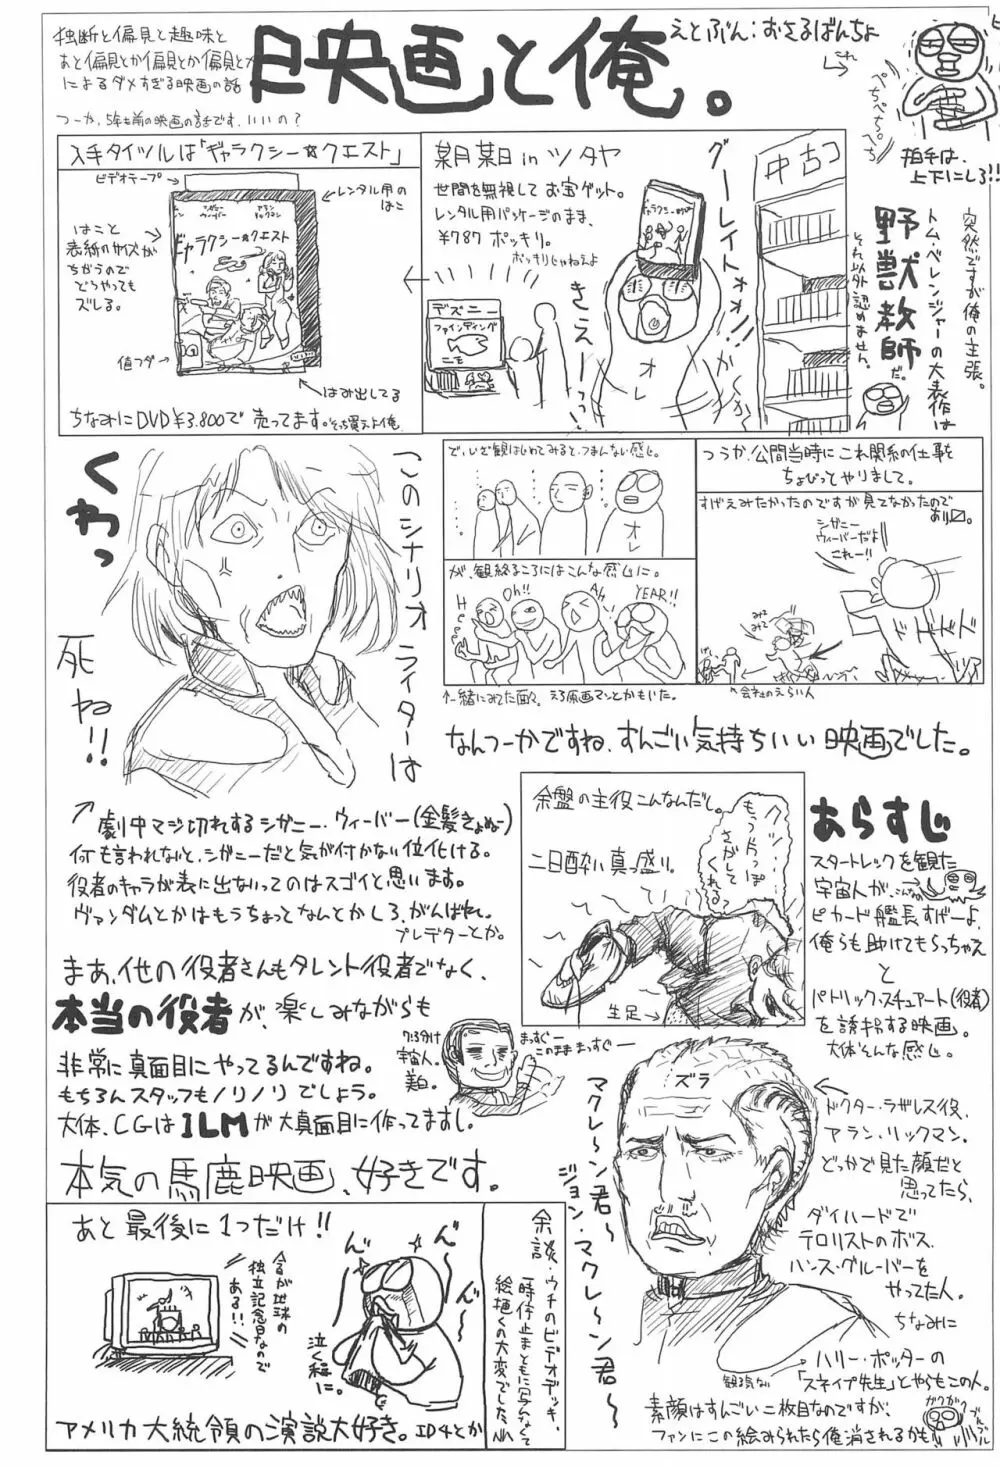 独断と偏見と趣味と
あと偏見とか偏見とか偏見とか
によるダメすぎる映画の話
つーか、5年も前の映画の話です。いいの？
映画と俺。
えとぶん：おさるばんちょ
これ
ぺちぺち。ぺち
拍手は、
上下にしろ!!
入手タイツルは「ギャラクシー☆クエスト」
ビデオテープ
レンタル用の
はこ
はこと
表紙のサイズが
ちがうので
どうやっても
ズレる。
シガニー
ウィーバー
アラン
リックマン
ギャラクシー☆クエスト
値フダ
はみ出してる
ちなみにDVD¥3.800で売ってます。そっち買えよ俺
某月某日inツタヤ
世間を無視してお宝ゲット。
レンタル用パッケージのまま、
¥787ポッキリ。
ポッキリじゃねぇよ
グーレイトォォ!!
きえーーっっ
オレ
デズニー
ファインディング
ニモ
中古コ
突然ですが俺の主張。
トム・ベレンジャーの大表作は
野獣教師だ。
それ以外認めません。
くわっ
このシナリオライターは
死ね!!
で、いざ観はじめてみると、つまんない感じ。
オレ
が、観終るころにはこんな感じに。
Oh!!
Ah
YEAR!!
↑一緒にみてた面々。えろ原画マンとかもいた。
つうか、公開当時にこれ関系の仕事を
ちょびっとやりまして。
すげえみたかったのですが見てなかったので
シガニー
ウィーバーだよ
これー!!
みて
みて
ドドドドド
↑会社のえらい人
なんつーかですね、すんごい気持ちいい映画でした。
↗劇中マジ切れするシガニー・ウィーバー(金髪きょぬー)
何も言われないと、シガニーだと気が付かない位化ける。
役者のキャラが表に出ないってのはスゴイと思います。
ヴァンダムとかはもうちょっとなんとかしろ、がんばれ。
プレデターとか。
まあ、他の役者さんもタレント役者でなく、
本当の役者が、楽しみながらも
非常に真面目にやってるんですね。
もちろんスタッフもノリノリでしょう。
大体、CGはILMが大真面目に作ってますし。
本気の馬鹿映画、好きです。
7:3分け
宇宙人。
美白。
まっすぐー
このままままっすぐー
序盤の主役こんなんだし。
二日酔い真っ盛り。
もう
さがして
くれる?
生足→
あらすじ
スタートレックを観た
宇宙人が、こんなの
ピカード艦長すげーよ、
俺らも助けてもらっちゃえ
と
パトリック・スチュアート(役者)
を誘拐する映画。
大体そんな感じ。
マクレ〜ン君〜
ジョン・マクレ〜ン君〜
ズラ
ドクター・ラザレス役、
アラン・リックマン。
どっかで見た顔だと
思ってたら、
ダイハードで
テロリストのボス、
ハンス・グルーバーを
やってた人。
ちなみに
ハリー・ポッターの
「スネイプ先生」とやらもこの人。
観る気ない
素顔はすんごい二枚目なのですが、
ファンにこの絵みられたら俺消されるかも
ガクガクブルブル
あと最後に1つだけ!!
今日が地球の
独立記念日なので
ある!!
泣く程に。
アメリカ大統領の演説大好き。ID4とか
余談・ウチのビデオデッキ、
一時停止まともに写んなくて
絵描くの大変でした。